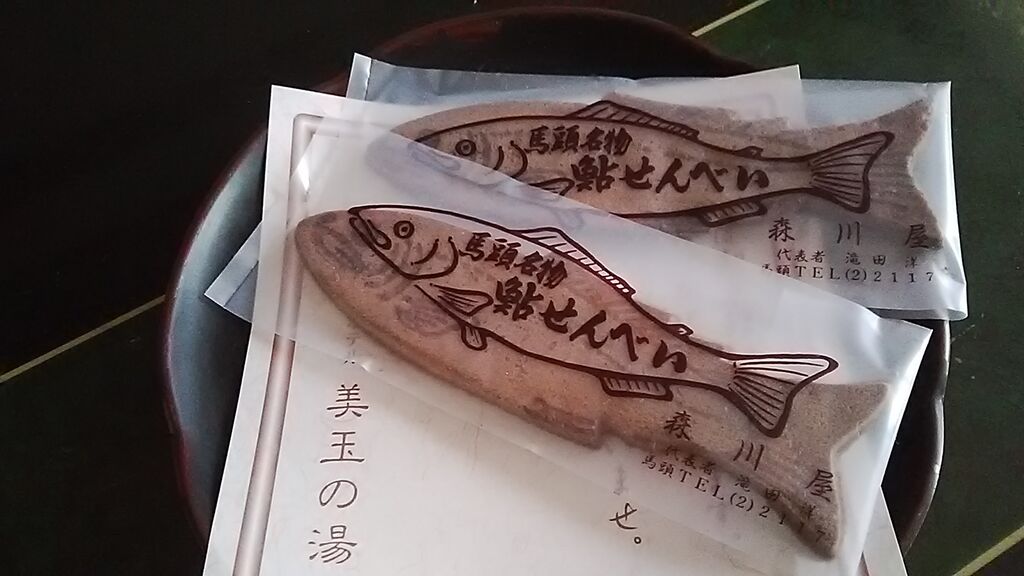 馬頭名物
鮎せんべい
森川屋
代表者 滝田洋
馬頭TEL(2)2117
馬頭名物
鮎せんべい
森川屋
代表者 滝田洋
馬頭TEL(2)2117
美玉の湯
せ。